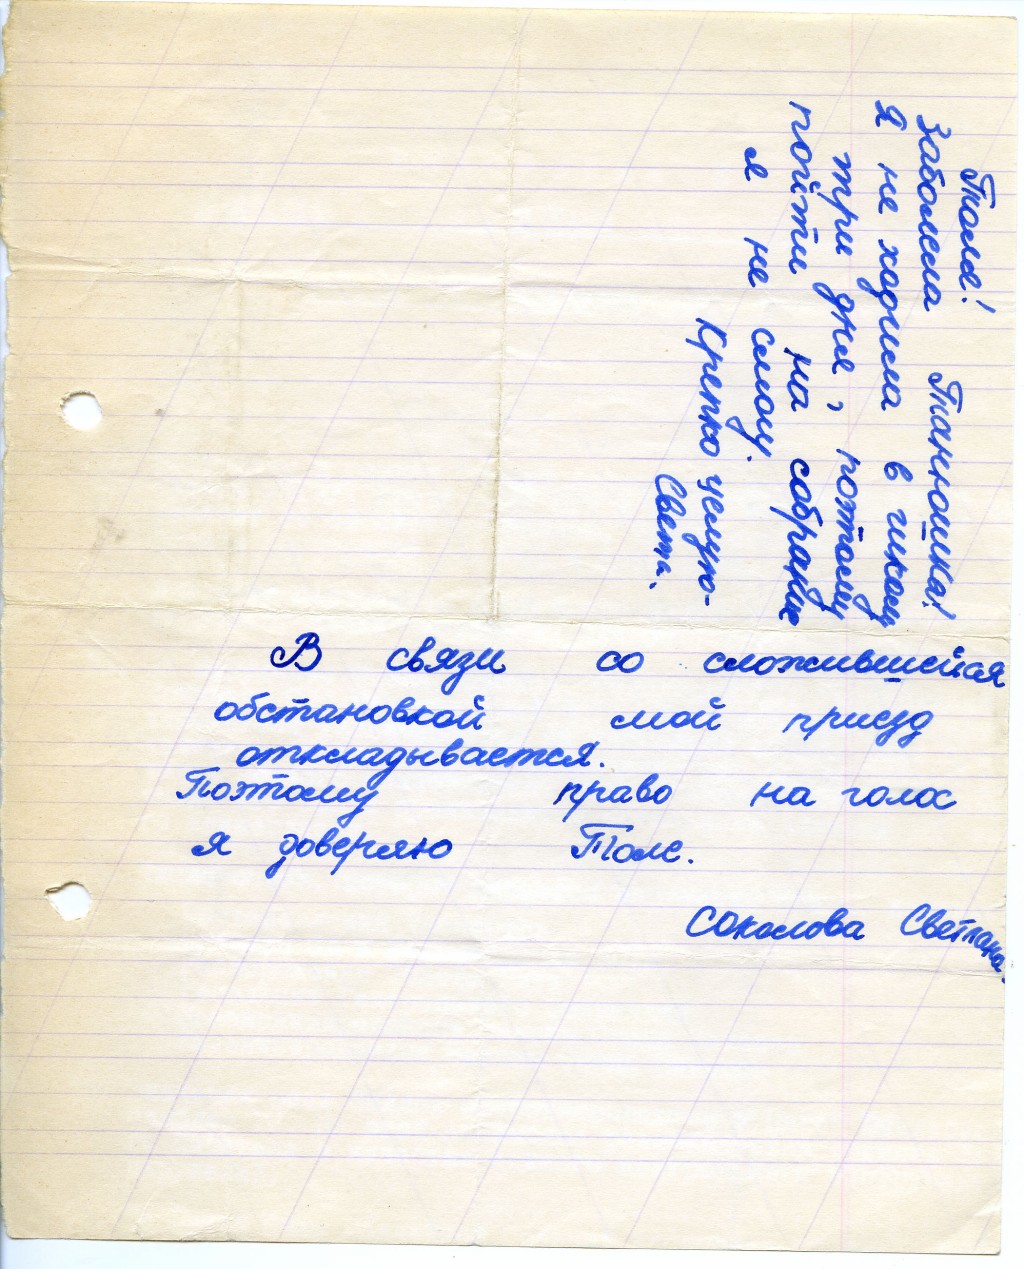 Толя! Танюшка!
Заболела
Я не ходила в школу
три дня, потому
пойти на собрание
я не смогу.
Крепко целую-
Света.
В связи со сложившейая
обстановкой мой приезд
откладывается.
Поэтому право на голос
я доверяю Толе.
Соколова Светлана.